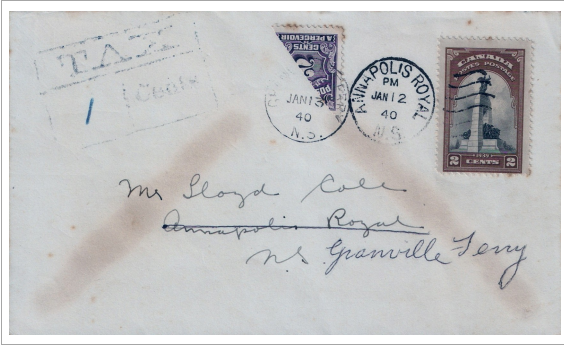 TAX
Cents
1
CENTS
À PERCEVOIR
2
JAN 13
40
N.S.
ANNAPOLIS ROYAL
PM
JAN 12
40
N.S.
CANADA
POSTES POSTAGE
2 CENTS 2
Mr Lloyd Cole
Annapolis Royal
N.S. Granville Ferry